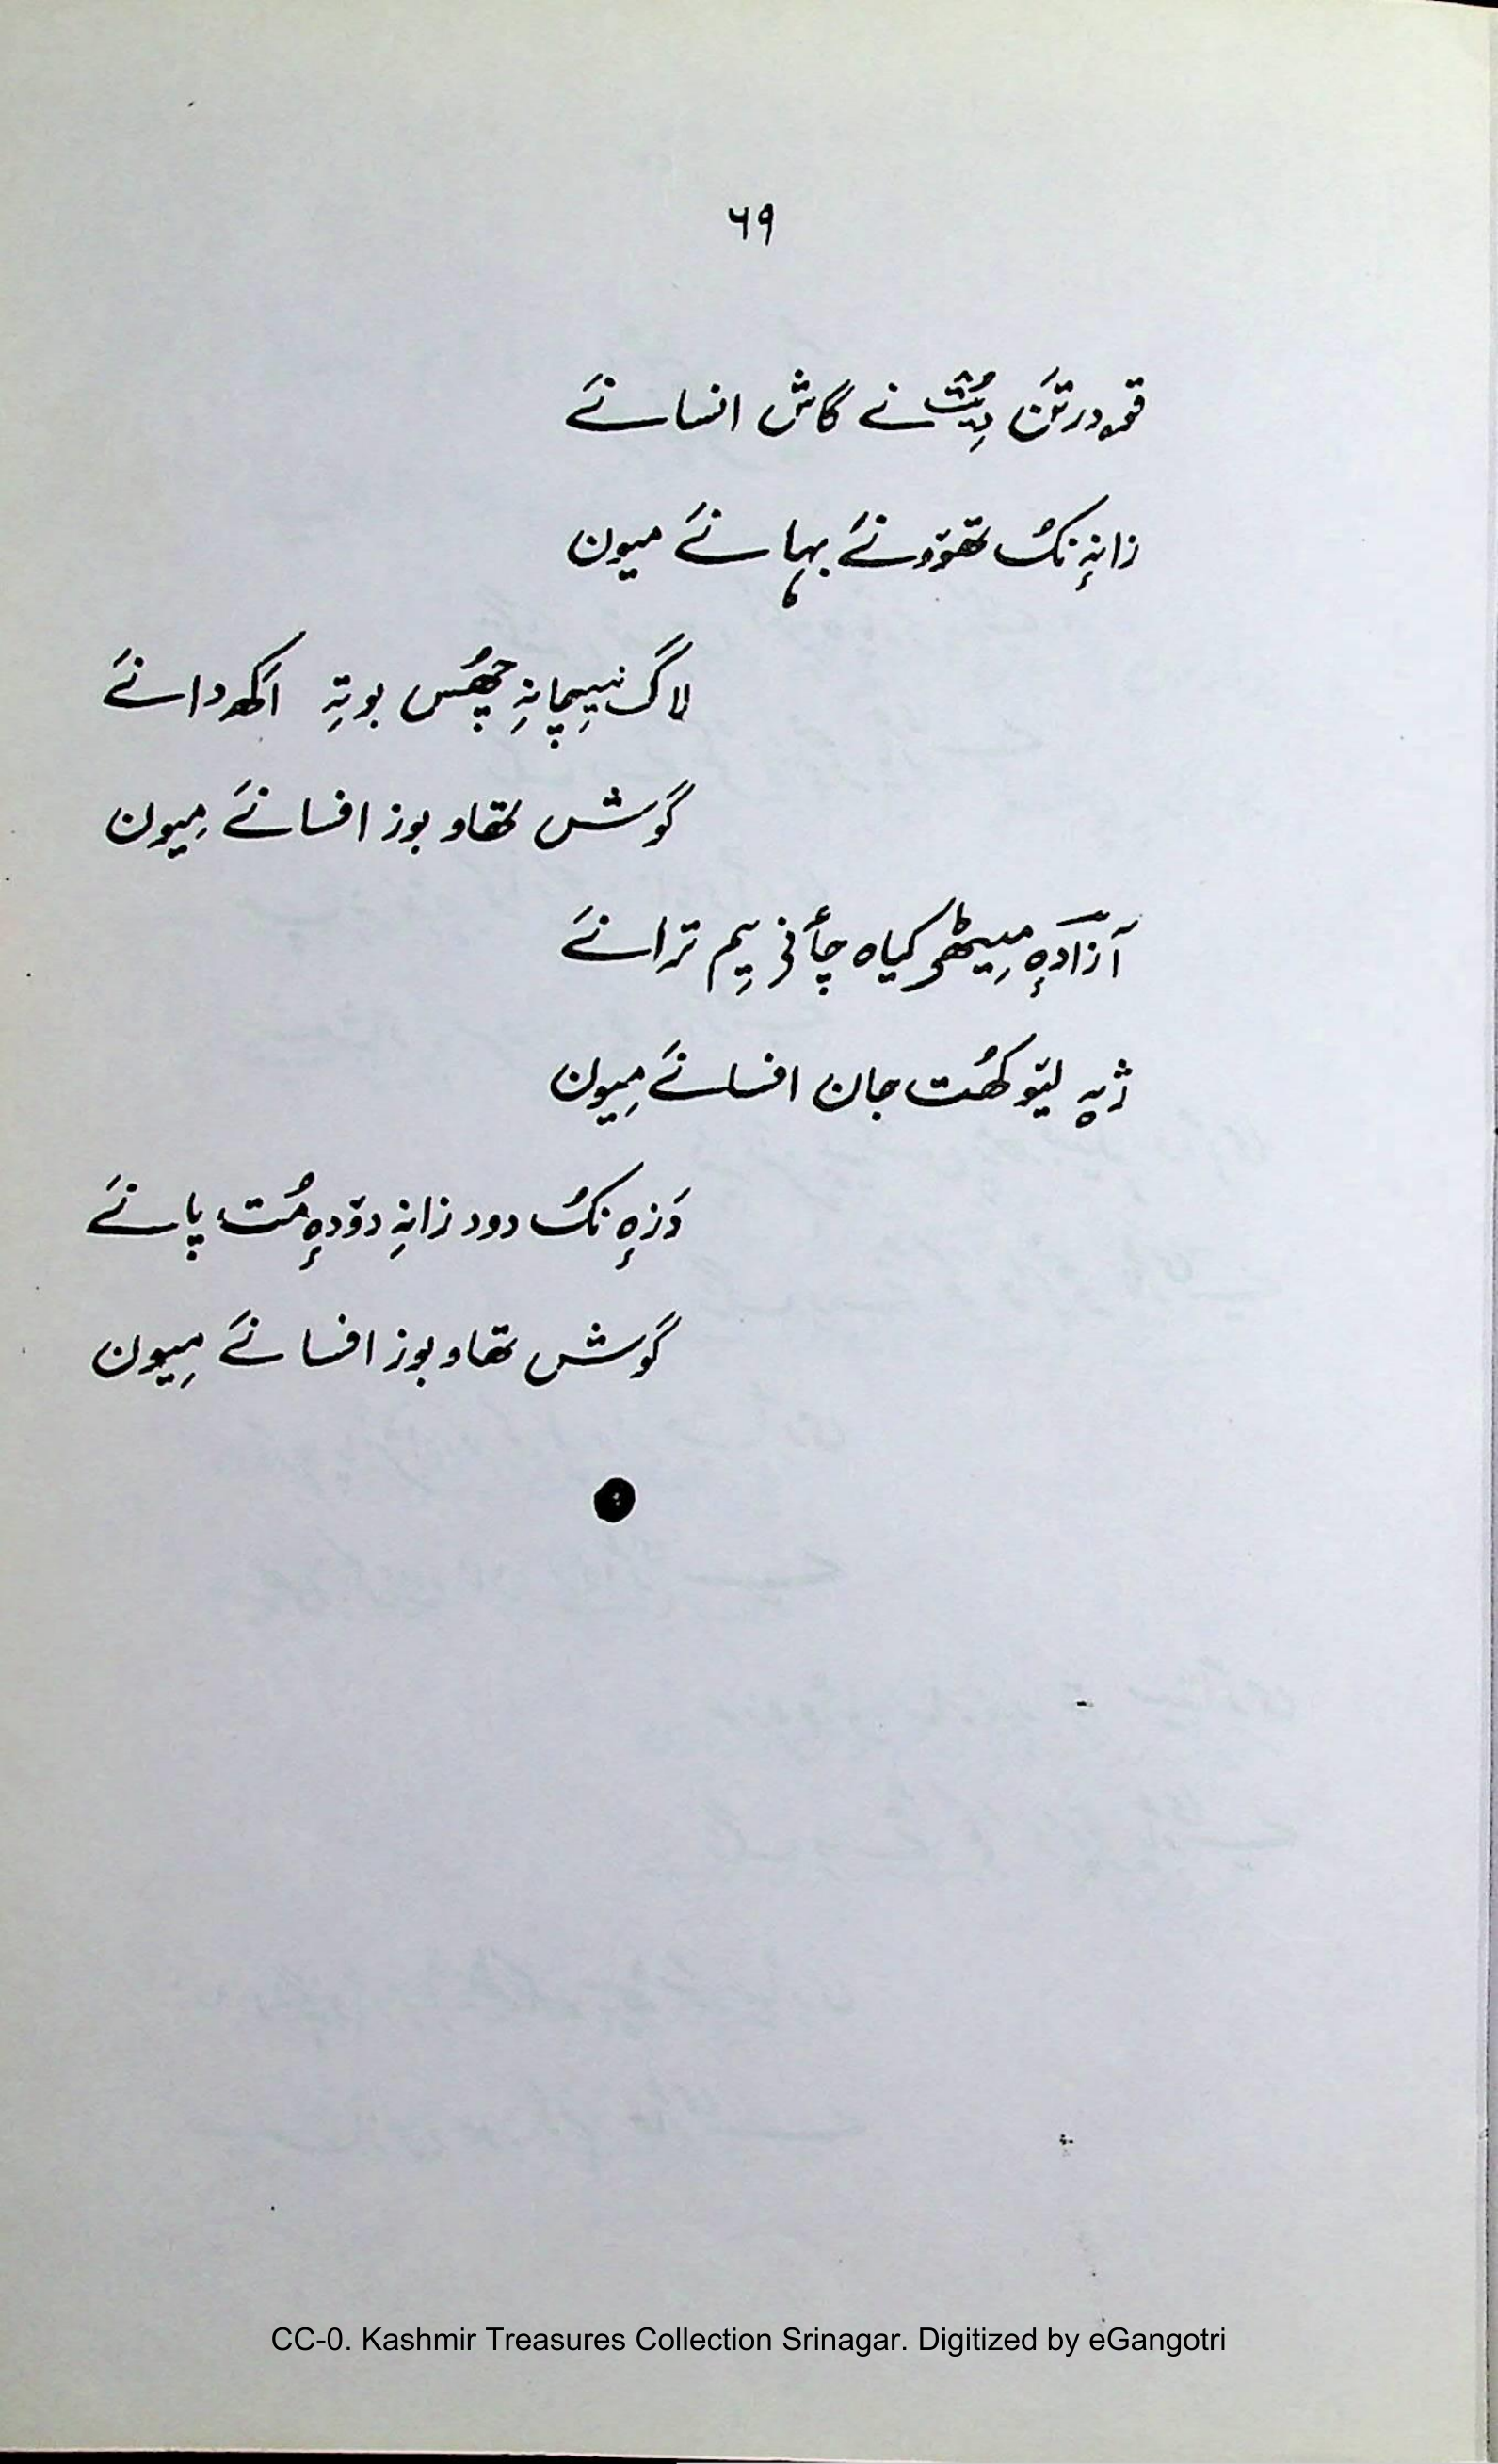 ۶۹
قۄدرتَن دِیُت نے گاش انسانَے
زانہٕ نکُ تھوٚو نَے بہانَے میون
لاگ نیچانہِ چھُس بو تہِ اَکھ دانَے
گوش تھاو بوز افسانَے میون
آزادہٕ مِیٹھۍ کیاہ چأنۍ یِم ترانَے
ژیہِ لیوٚکھُت جان افسانَے میون
دَزہٕ نکُ دود زانہِ دوٚدہٕ مُت پانَے
گوش تھاو بوز افسانَے میون
CC-0. Kashmir Treasures Collection Srinagar. Digitized by eGangotri